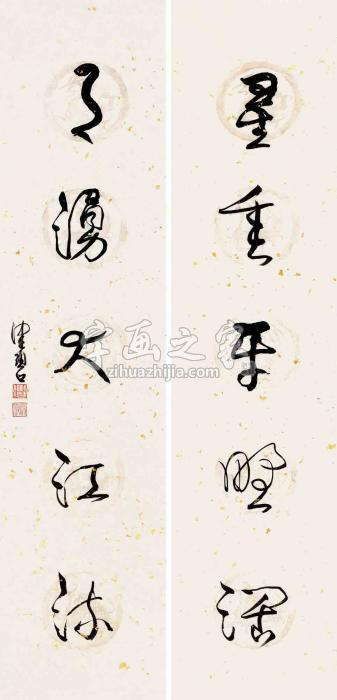 星垂平野濶
月湧大江流
字画之家
zihuazhijia.com